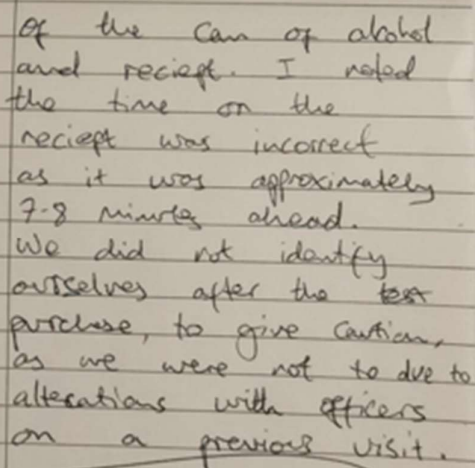 of the can of alcohol
and reciept. I noted
the time on the
reciept was incorrect
as it was approximately
7-8 minutes ahead.
We did not identify
ourselves after the test
purchase, to give caution,
as we were not to due to
altercations with officers
on a previous visit.